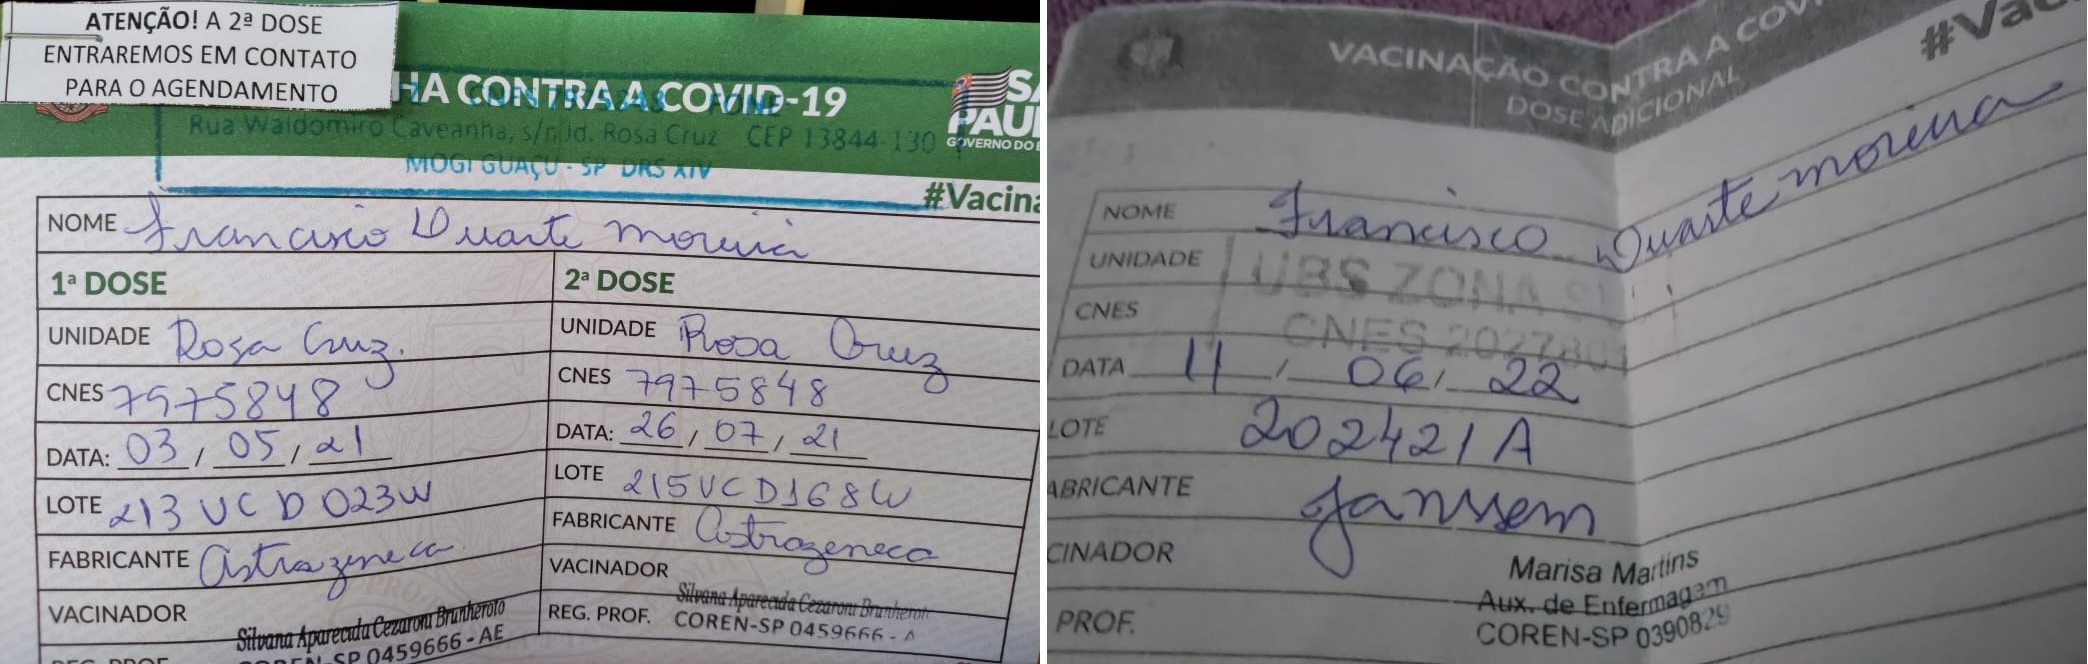 ATENÇÃO! A 2ª DOSE
ENTRAREMOS EM CONTATO
PARA O AGENDAMENTO
HA CONTRA A COVID-19
Rua Waldomiro Caveanha, s/n Jd. Rosa Cruz CEP 13844-130
MOGI GUAÇU - SP DRS XIV
SÃ
PAU
GOVERNO DO E
#Vacina
NOME Francisco Duarte Moreira
1ª DOSE
UNIDADE Rosa Cruz.
CNES 7975848
DATA: 03 / 05 / 21
LOTE 213 VC D 023W
FABRICANTE Astrazeneca.
VACINADOR
Silvana Aparecida Cezaroni Brunheroto
COREN-SP 0459666 - AE
REG. PROF.
2ª DOSE
UNIDADE Rosa Cruz
CNES 7975848
DATA: 26 / 07 / 21
LOTE 215VCD168W
FABRICANTE Astrazeneca
VACINADOR
Silvana Aparecida Cezaroni Brunheroto
REG. PROF. COREN-SP 0459666 - A
#Vac
VACINAÇÃO CONTRA A COV
DOSE ADICIONAL
NOME Francisco Duarte moreira
UNIDADE UBS ZONA SUL
CNES CNES 2027801
DATA 11 / 06 / 22
LOTE 202421A
ABRICANTE Janssem
CINADOR
Marisa Martins
Aux. de Enfermagem
PROF. COREN-SP 0390829